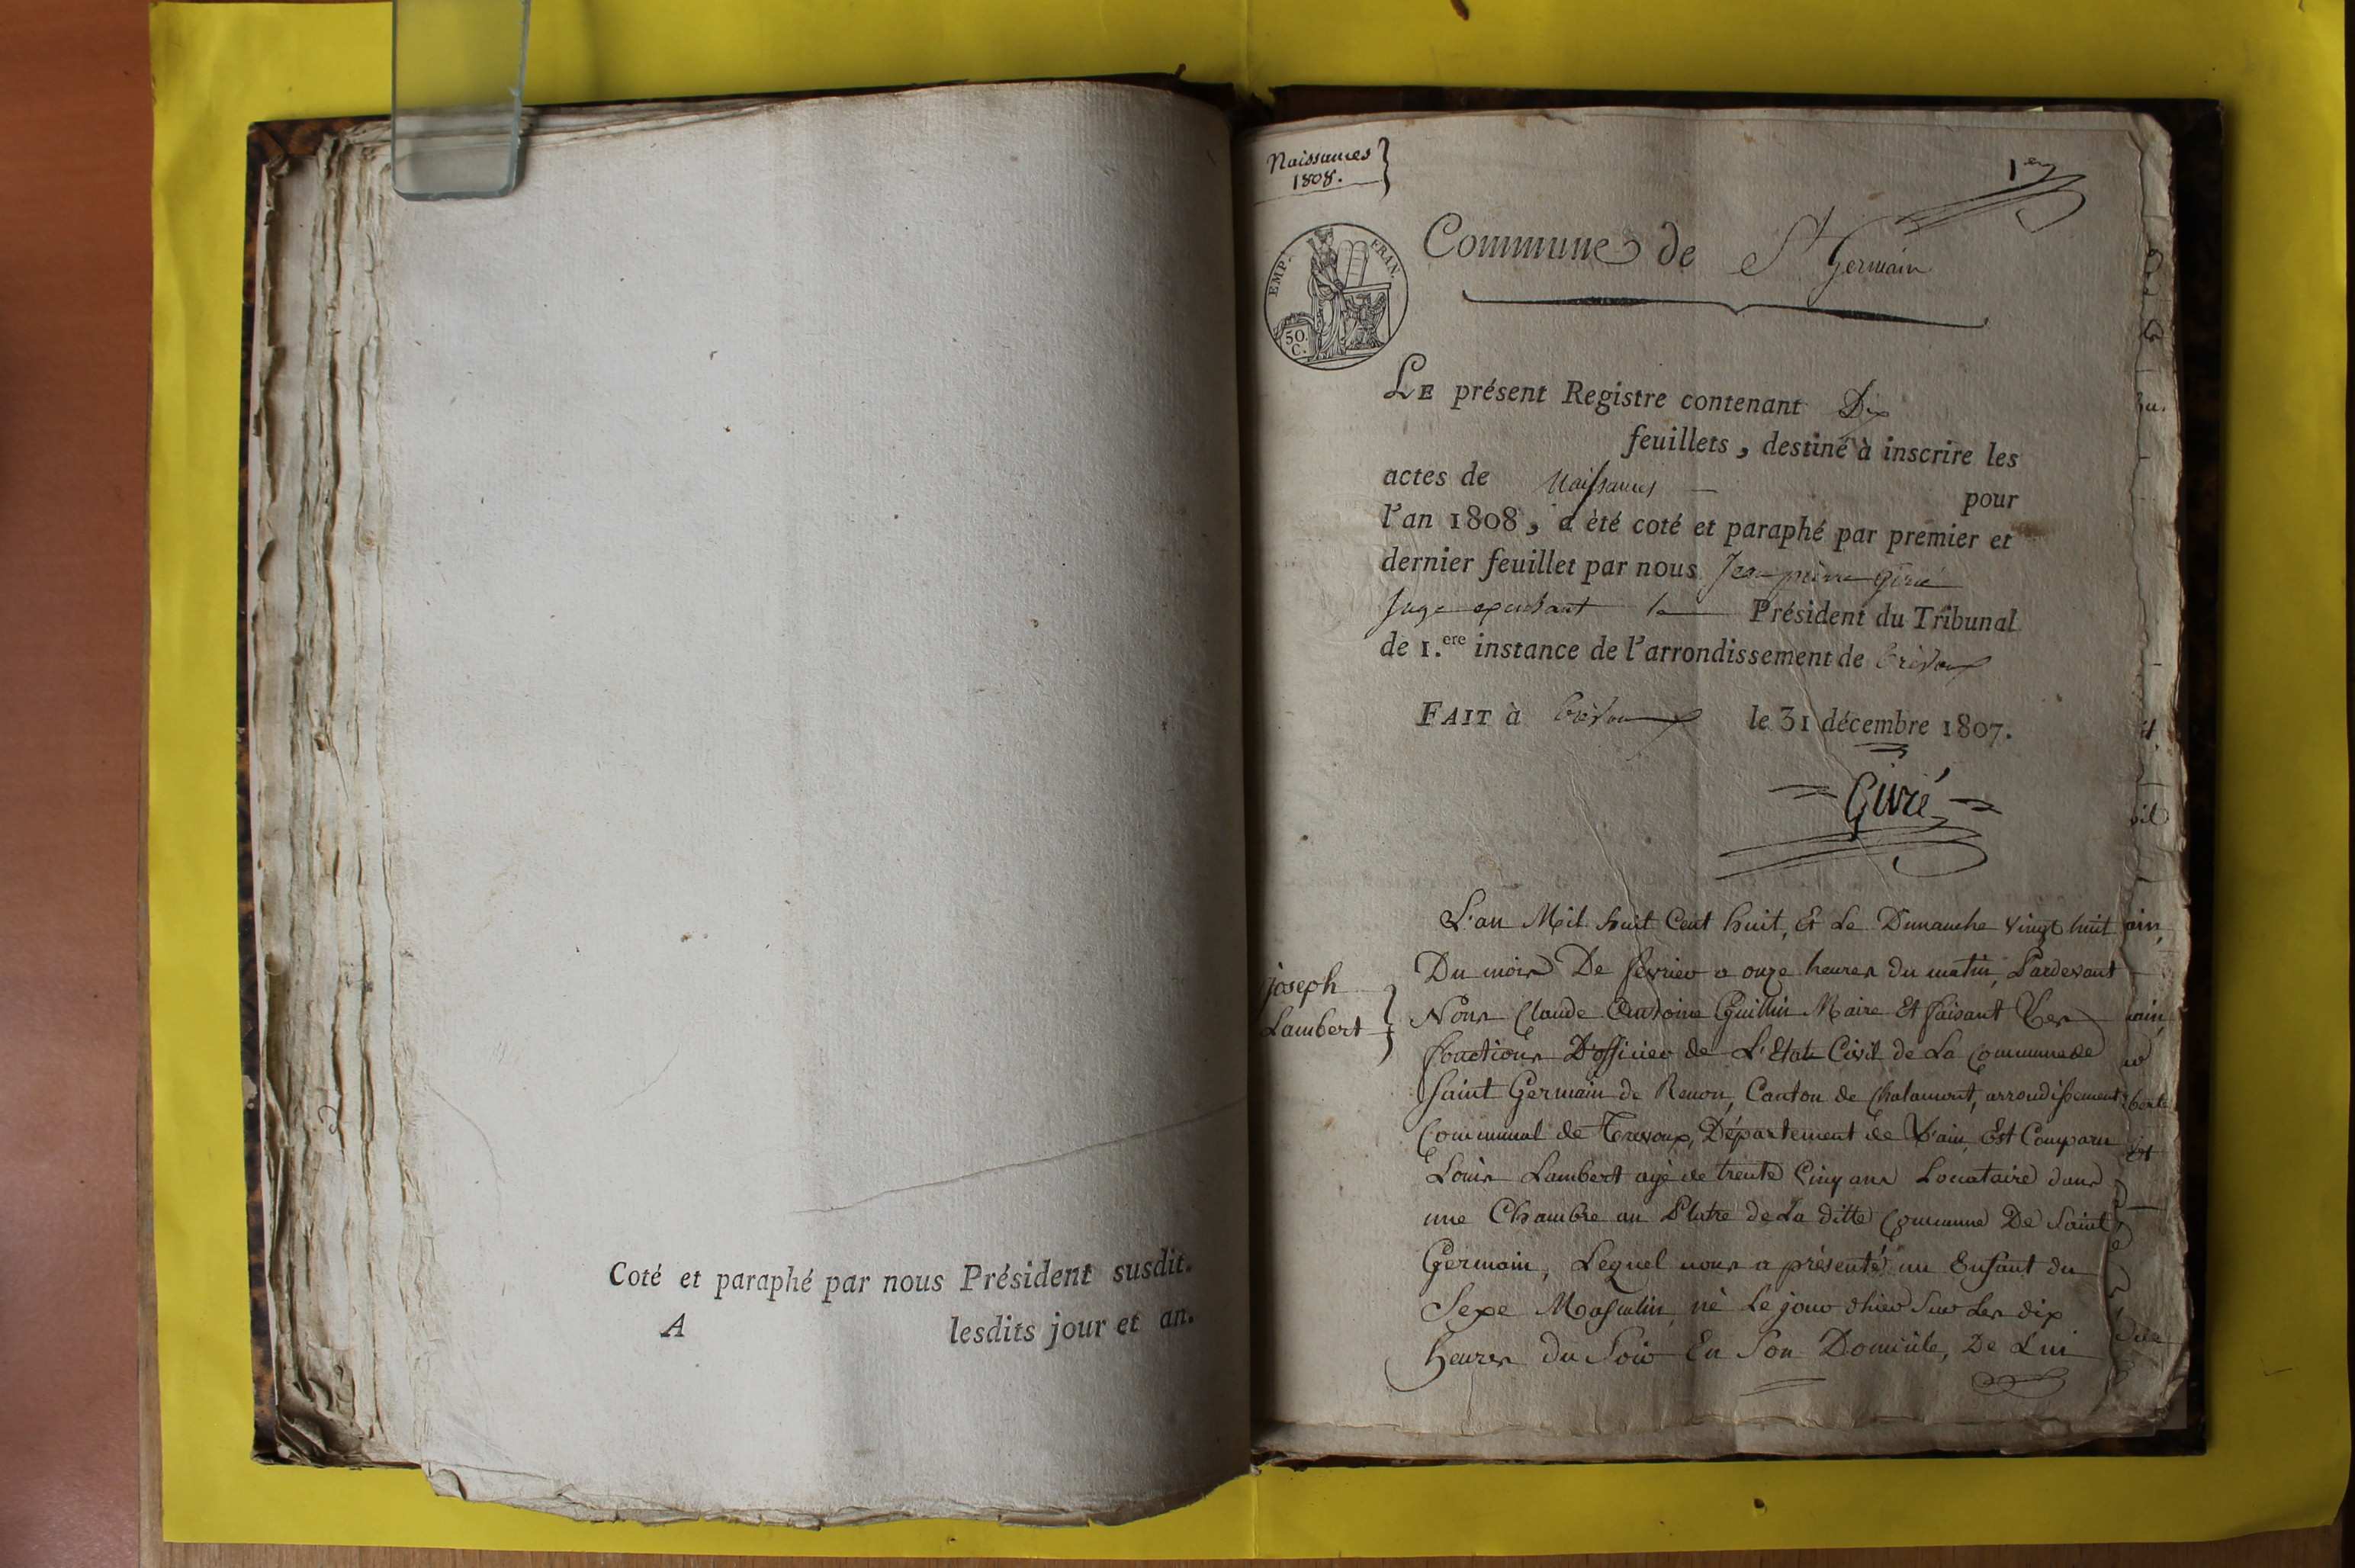 Coté et paraphé par nous Président susdit.
A lesdits jour et an.
Naissances
1808.
1er
EMP. FRAN.
50.
C.
Commune de St Germain
LE présent Registre contenant Dix
feuillets, destiné à inscrire les
actes de Naissances pour
l'an 1808, a èté coté et paraphé par premier et
dernier feuillet par nous Jean pierre Givré
Juge Président du Tribunal
de 1.ere instance de l'arrondissement de trévoux
FAIT à trévoux le 31 décembre 1807.
Givré
joseph
Lambert
L'an Mil huit Cent huit, Et Le Dimanche vingt huit
Du mois De fevrier a onze heures du matin, Pardevant
Nous Claude Antoine Guillin Maire Et faisant Les
fonctions D'officier de L'Etat Civil de La Commune de
Saint Germain de Renon, Canton de Chalamont, arrondissement
Communal de Trevoux, Département de L'ain, Est Comparu
Louis Lambert agé de trente Cinq ans Locataire dans
une Chambre au Platre de La ditte Commune De Saint
Germain, Lequel nous a présenté un Enfant du
Sexe Masculin, né Le jour d'hier Sur Les dix
heures du Soir En Son Domicile, De Lui